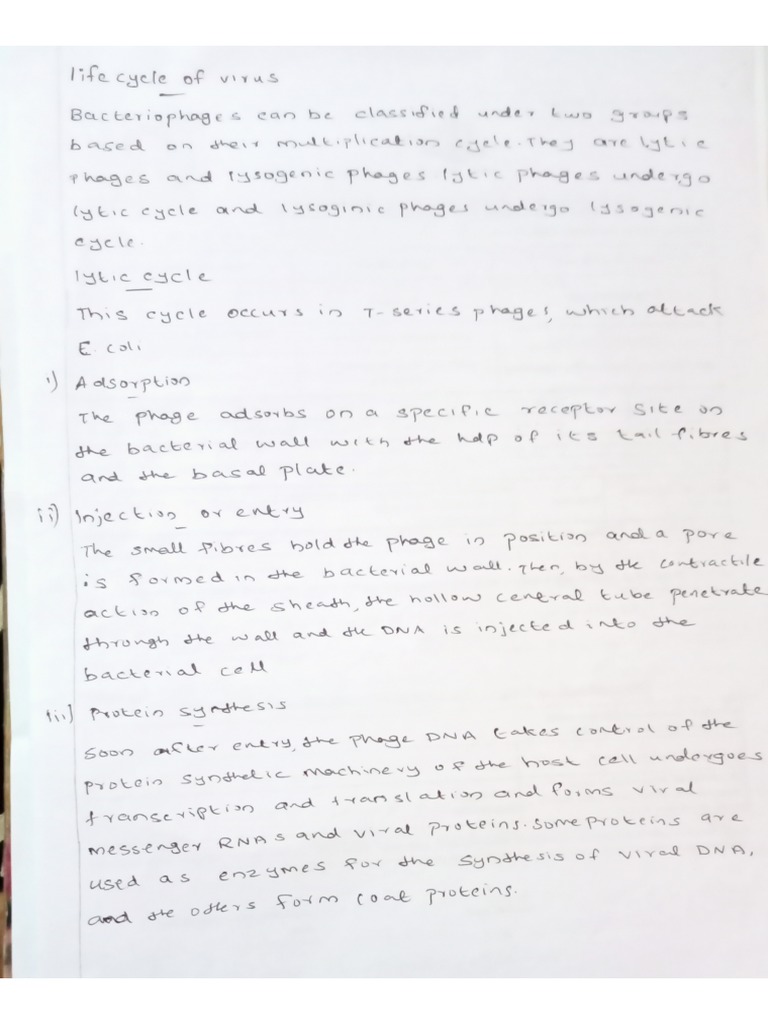 life cycle of virus
Bacteriophages can be classified under two groups
based on their multiplication cycle. They are lytic
phages and lysogenic phages lytic phages undergo
lytic cycle and lysoginic phages undergo lysogenic
cycle.
lytic cycle
This cycle occurs in T-series phages, which attack
E. coli
i) Adsorption
The phage adsorbs on a specific receptor site on
the bacterial wall with the help of its tail fibres
and the basal plate.
ii) Injection or entry
The small fibres hold the phage in position and a pore
is formed in the bacterial wall. Then, by the contractile
action of the sheath, the hollow central tube penetrate
through the wall and the DNA is injected into the
bacterial cell
iii) Protein synthesis
Soon after entry, the phage DNA takes control of the
protein synthelic machinery of the host cell undergoes
transcription and translation and forms viral
messenger RNAs and viral proteins. Some proteins are
used as enzymes for the synthesis of viral DNA,
and the others form coat proteins.